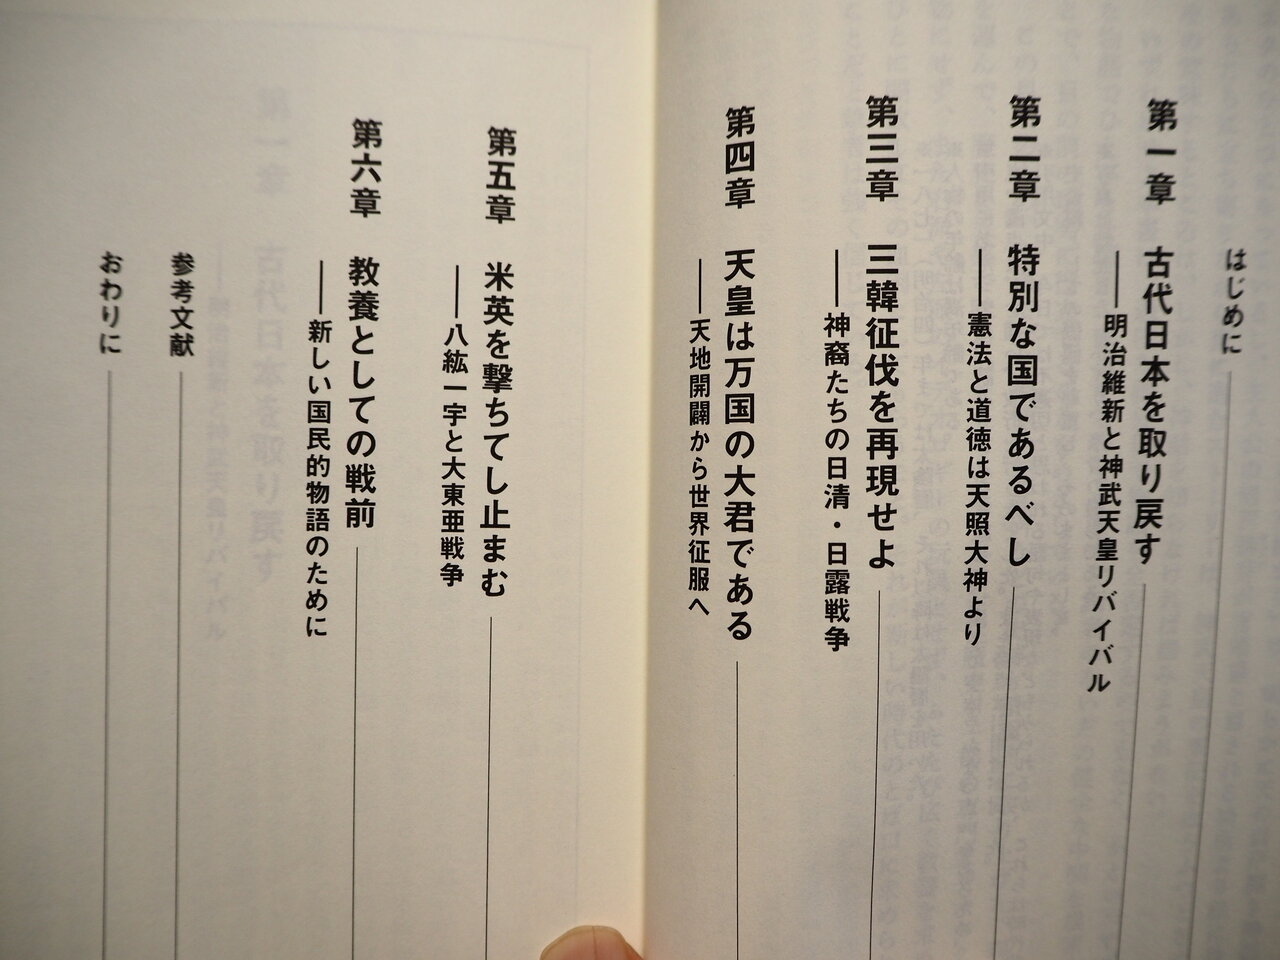 はじめに
第一章 古代日本を取り戻す
――明治維新と神武天皇リバイバル
第二章 特別な国であるべし
――憲法と道徳は天照大神より
第三章 三韓征伐を再現せよ
――神裔たちの日清・日露戦争
第四章 天皇は万国の大君である
――天地開闢から世界征服へ
第五章 米英を撃ちてし止まむ
――八紘一宇と大東亜戦争
第六章 教養としての戦前
――新しい国民的物語のために
参考文献
おわりに